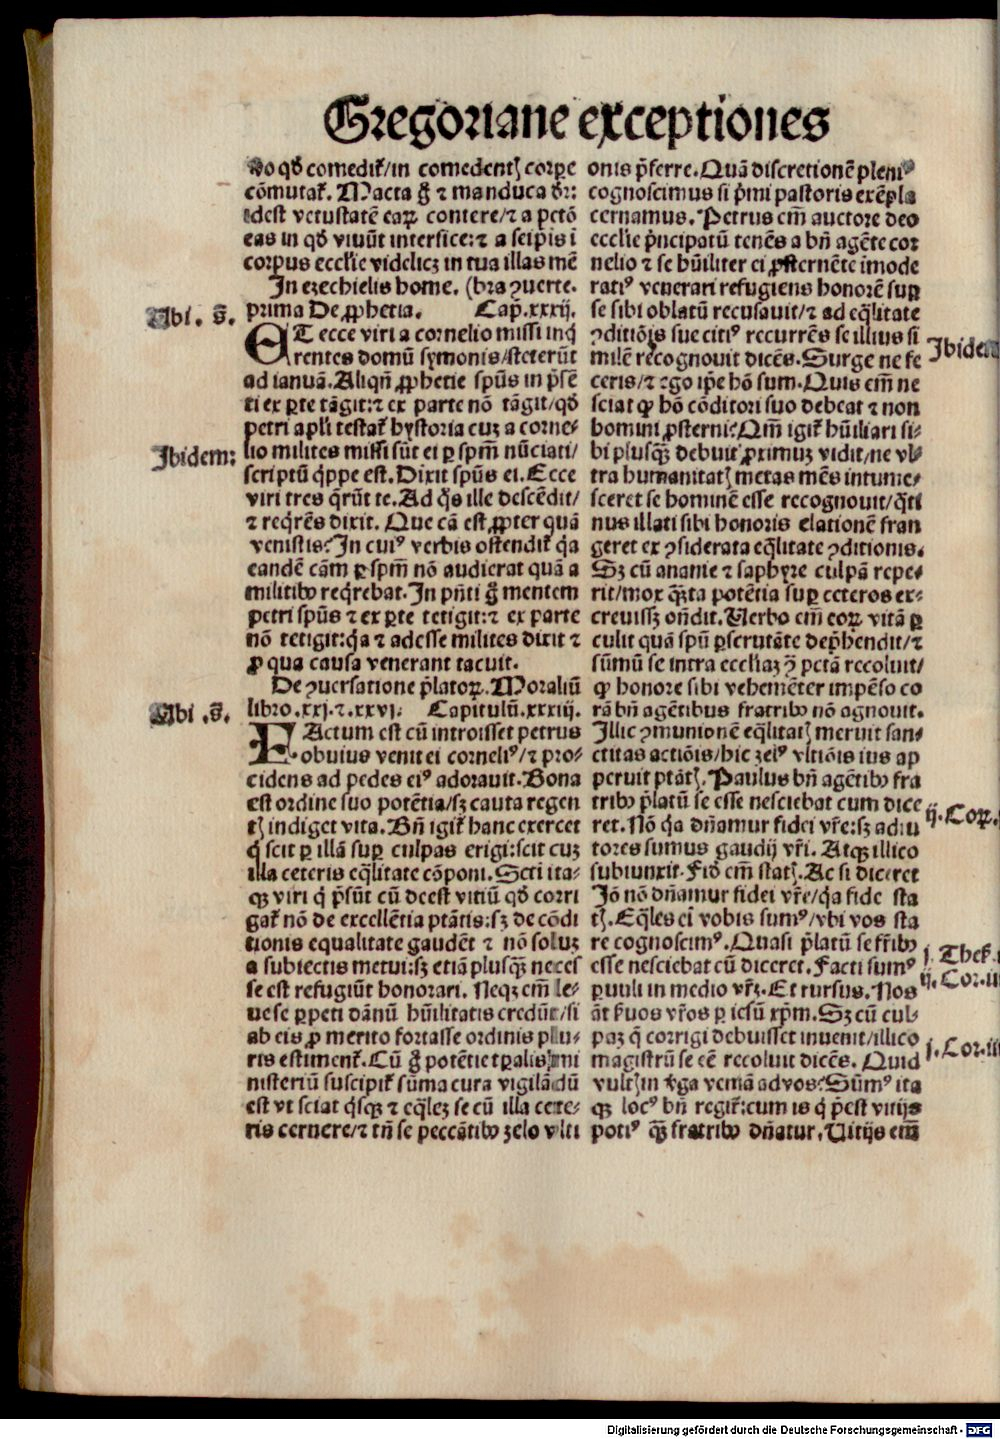 Gregoriane exceptiones
do qd̕ comediť/in comedentꝭ corpe
cōmutať. Macta g̊ ⁊ manduca dr̄:
idest vetustatē eaꝝ contere/⁊ a pctō
eas in qd̕ viuūt interfice:⁊ a seipis ī
corpus eccl'ie videlicꝫ in tua illas mē
In ezechielis home. (bra ꝯuerte.
prima De ꝓphetia. Cap̄.xxxij.
ET ecce viri a cornelio missi inq̇
rentes domū symonis/steterūt
ad ianuā. Aliqn̄ ꝓphetie spūs in p̄sē
ti ex ꝑte tāgit:⁊ ex parte nō tāgit/qd̕
petri apl'i testať hystoria cuꝫ a corne-
lio milites missi sūt ei ꝑ spm̄ nūciati/
scriptū q̇ppe est. Dixit spūs ei. Ecce
viri tres q̄rūt te. Ad q̊s ille descēdit/
⁊ req̇rēs dixit. Que cā est ꝓpter quā
venistis? In cuiꝰ verbis ostendiť q̇a
eandē cām ꝑ spm̄ nō audierat quā a
militibꝰ req̇rebat. In pn̄ti g̊ mentem
petri spūs ⁊ ex ꝑte tetigit:⁊ ex parte
nō tetigit:q̇a ⁊ adesse milites dixit ⁊
ꝓ qua causa venerant tacuit.
De ꝯuersatione p̄latoꝝ. Moraliū
libro .xxj.⁊.xxvj. Capitulū.xxxiij.
FActum est cū introisset petrus
obuius venit ei corneliꝰ/⁊ pro-
cidens ad pedes eiꝰ adorauit. Bona
est ordine suo potētia/sꝫ cauta regen
tꝭ indiget vita. Bn̄ igiť hanc exercet
q̇ scit ꝑ illā suꝑ culpas erigi:scit cuꝫ
illa ceteris eq̄litate cōponi. Scti ita-
qꝫ viri q̇ p̄sūt cū deest vitiū qd̕ corri
gať nō de excellētia ptātis:sꝫ de cōdi
tionis equalitate gaudēt ⁊ nō soluꝫ
a subiectis metui:sꝫ etiā plusq̄ꝫ neces
se est refugiūt honorari. Neqꝫ em̄ le-
ue se ꝑpeti dānū hūilitatis credūt/si
ab eis ꝓ merito fortasse ordinis plu-
ris estimenť. Cū g̊ potētie tꝑalis mi
nisteriū suscipiť sūma cura vigilādū
est vt sciat q̇sqꝫ ⁊ eq̄leꝫ se cū illa cete-
ris cernere/⁊ tn̄ se peccātibꝰ zelo vlti
onis p̄ferre. Quā discretionē pleniꝰ
cognoscimus si p̄mi pastoris exēpla
cernamus. Petrus em̄ auctore deo
eccl'ie p̄ncipatū tenēs a bn̄ agēte cor
nelio ⁊ se hūiliter ei ꝓsternēte īmode
ratiꝰ venerari refugiens honorē suꝑ
se sibi oblatū recusauit/⁊ ad eq̄litate
ꝯditiōis sue citiꝰ recurrēs se illius si
milē recognouit dicēs. Surge ne fe
ceris/⁊ ego ip̄e hō sum. Quis em̄ ne
sciat ꝙ hō cōditori suo debeat ⁊ non
homini ꝓsterni? Qm̄ igiť hūiliari si-
bi plusq̄ꝫ debuit ꝓximuꝫ vidit/ne vl-
tra humanitatꝭ metas mēs intume-
sceret se hominē esse recognouit/q̄ti
nus illati sibi honoris elationē fran
geret ex ꝯsiderata eq̄litate ꝯditionis.
Sꝫ cū ananie ⁊ saphyre culpā repe-
rit/mox q̄ꝫta potētia suꝑ ceteros ex-
creuissꝫ on̄dit. Verbo em̄ eoꝝ vitā ꝑ
culit quā spū ꝑscrutāte dep̄hendit/⁊
sūmū se intra eccl'iaꝫ ꝯ̄ pctā recoluit/
ꝙ honore sibi vehemēter impēso co
rā bn̄ agētibus fratribꝰ nō agnouit.
Illic ꝯmunionē eq̄litatꝭ meruit san-
ctitas actiōis/hic zelꝰ vltiōis ius ap
peruit ptātꝭ. Paulus bn̄ agētibꝰ fra
tribꝰ p̄latū se esse nesciebat cum dice
ret. Nō q̇a dn̄amur fidei vr̄e:sꝫ adiu
tores sumus gaudij vr̄i. Atqꝫ illico
subiunxit. Fid̕ em̄ statꝭ. Ac si diceret
Iō nō dn̄amur fidei vr̄e/q̇a fide sta
tꝭ. Eq̄les em̄ vobis sumꝰ/vbi vos sta
re cognoscimꝰ. Quasi p̄latū se fr̄ibꝰ
esse nesciebat cū diceret. Facti sumꝰ
ꝑuuli in medio vr̄ꝫ. Et rursus. Nos
āt ẜuos vr̄os ꝑ iesū xp̄m. Sꝫ cū cul-
paꝫ q̄ corrigi debuisset inuenit/illico
magistrū se eē recoluit dicēs. Quid
vultꝭ in v̇ga veniā ad vos? Sūmꝰ ita
qꝫ locꝰ bn̄ regiť:cum is q̇ p̄est vitijs
potiꝰ q̄ꝫ fratribꝰ dn̄atur. Uitijs em̄
Ubi .s̄.
Ibidem:
Ubi .s̄.
ij. Coꝝ.
j. Thes̄.
ij. Cor. ii
j. Cor. iii
Digitalisierung gefördert durch die Deutsche Forschungsgemeinschaft - DFG